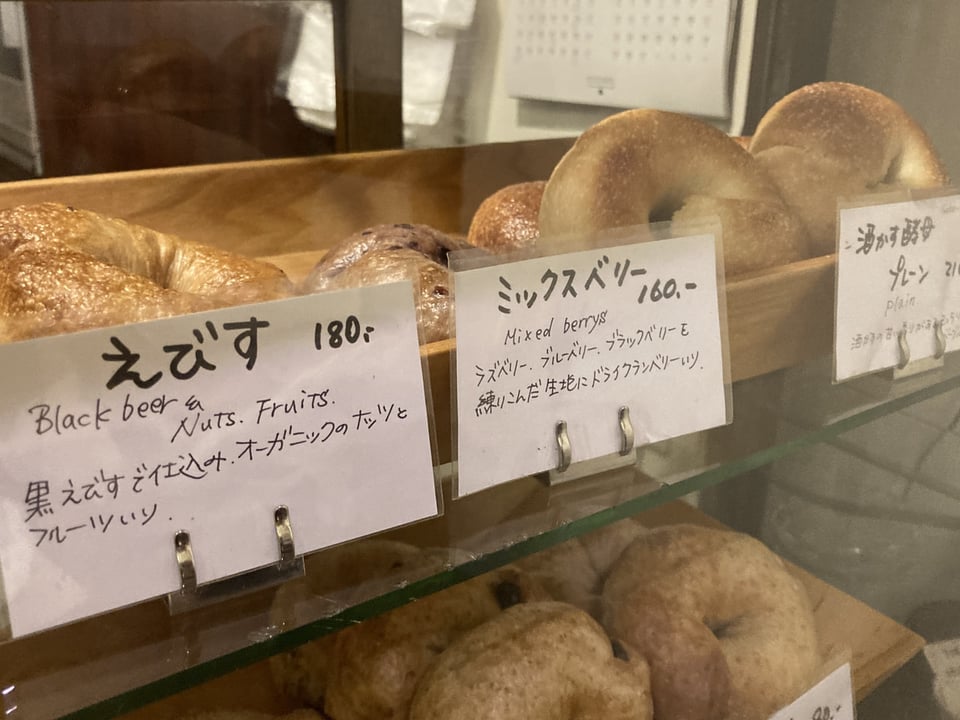 えびす 180.-
Black beer &
Nuts. Fruits.
黒えびすで仕込み.オーガニックのナッツと
フルーツいり.
ミックスベリー
160.-
Mixed berrys
ラズベリー.ブルーベリー.ブラックベリーを
練りこんだ生地にドライクランベリーいり.
酒かす酵母
プレーン
Plain.